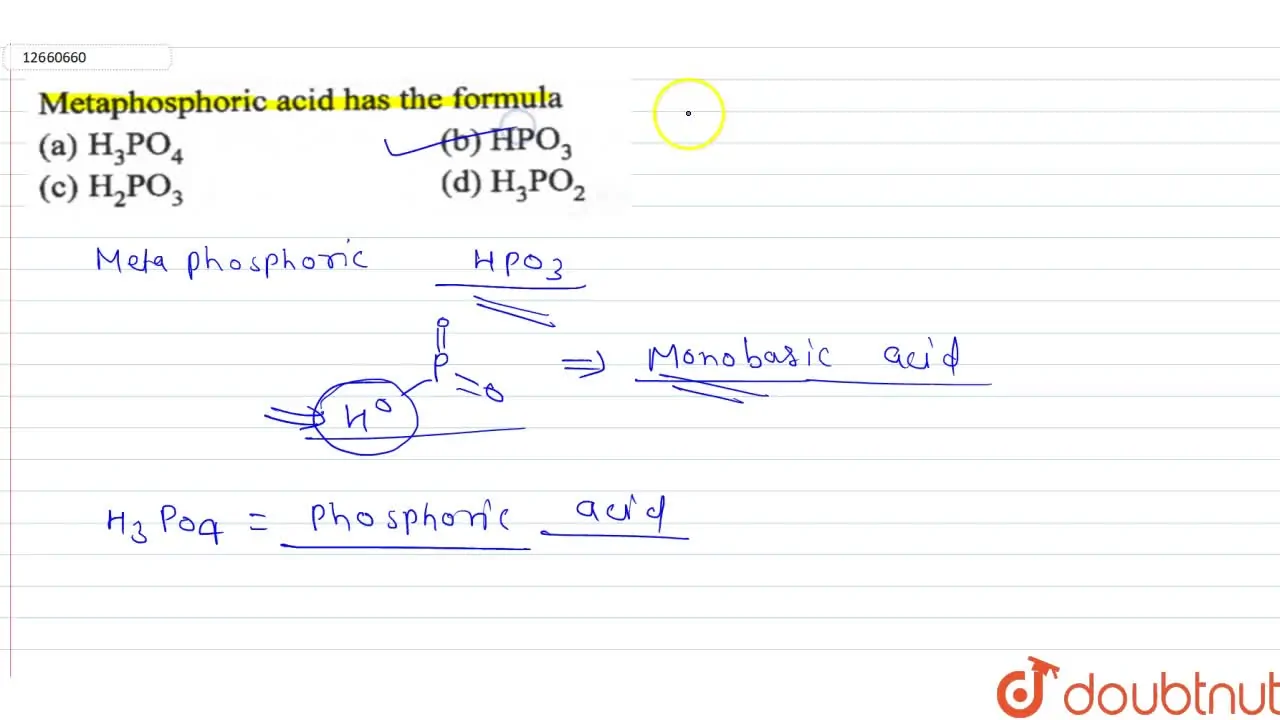 12660660
Metaphosphoric acid has the formula
(a) H₃PO₄ (b) HPO₃
(c) H₂PO₃ (d) H₃PO₂
Meta phosphoric HPO₃
O
P
HO O ⇒ Monobasic acid
H₃PO₄ = Phosphoric acid
doubtnut